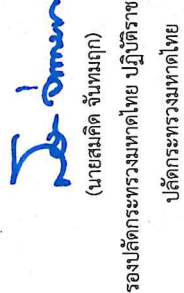 (นายสมคิด จันทมฤก)
รองปลัดกระทรวงมหาดไทย ปฏิบัติราช
ปลัดกระทรวงมหาดไทย